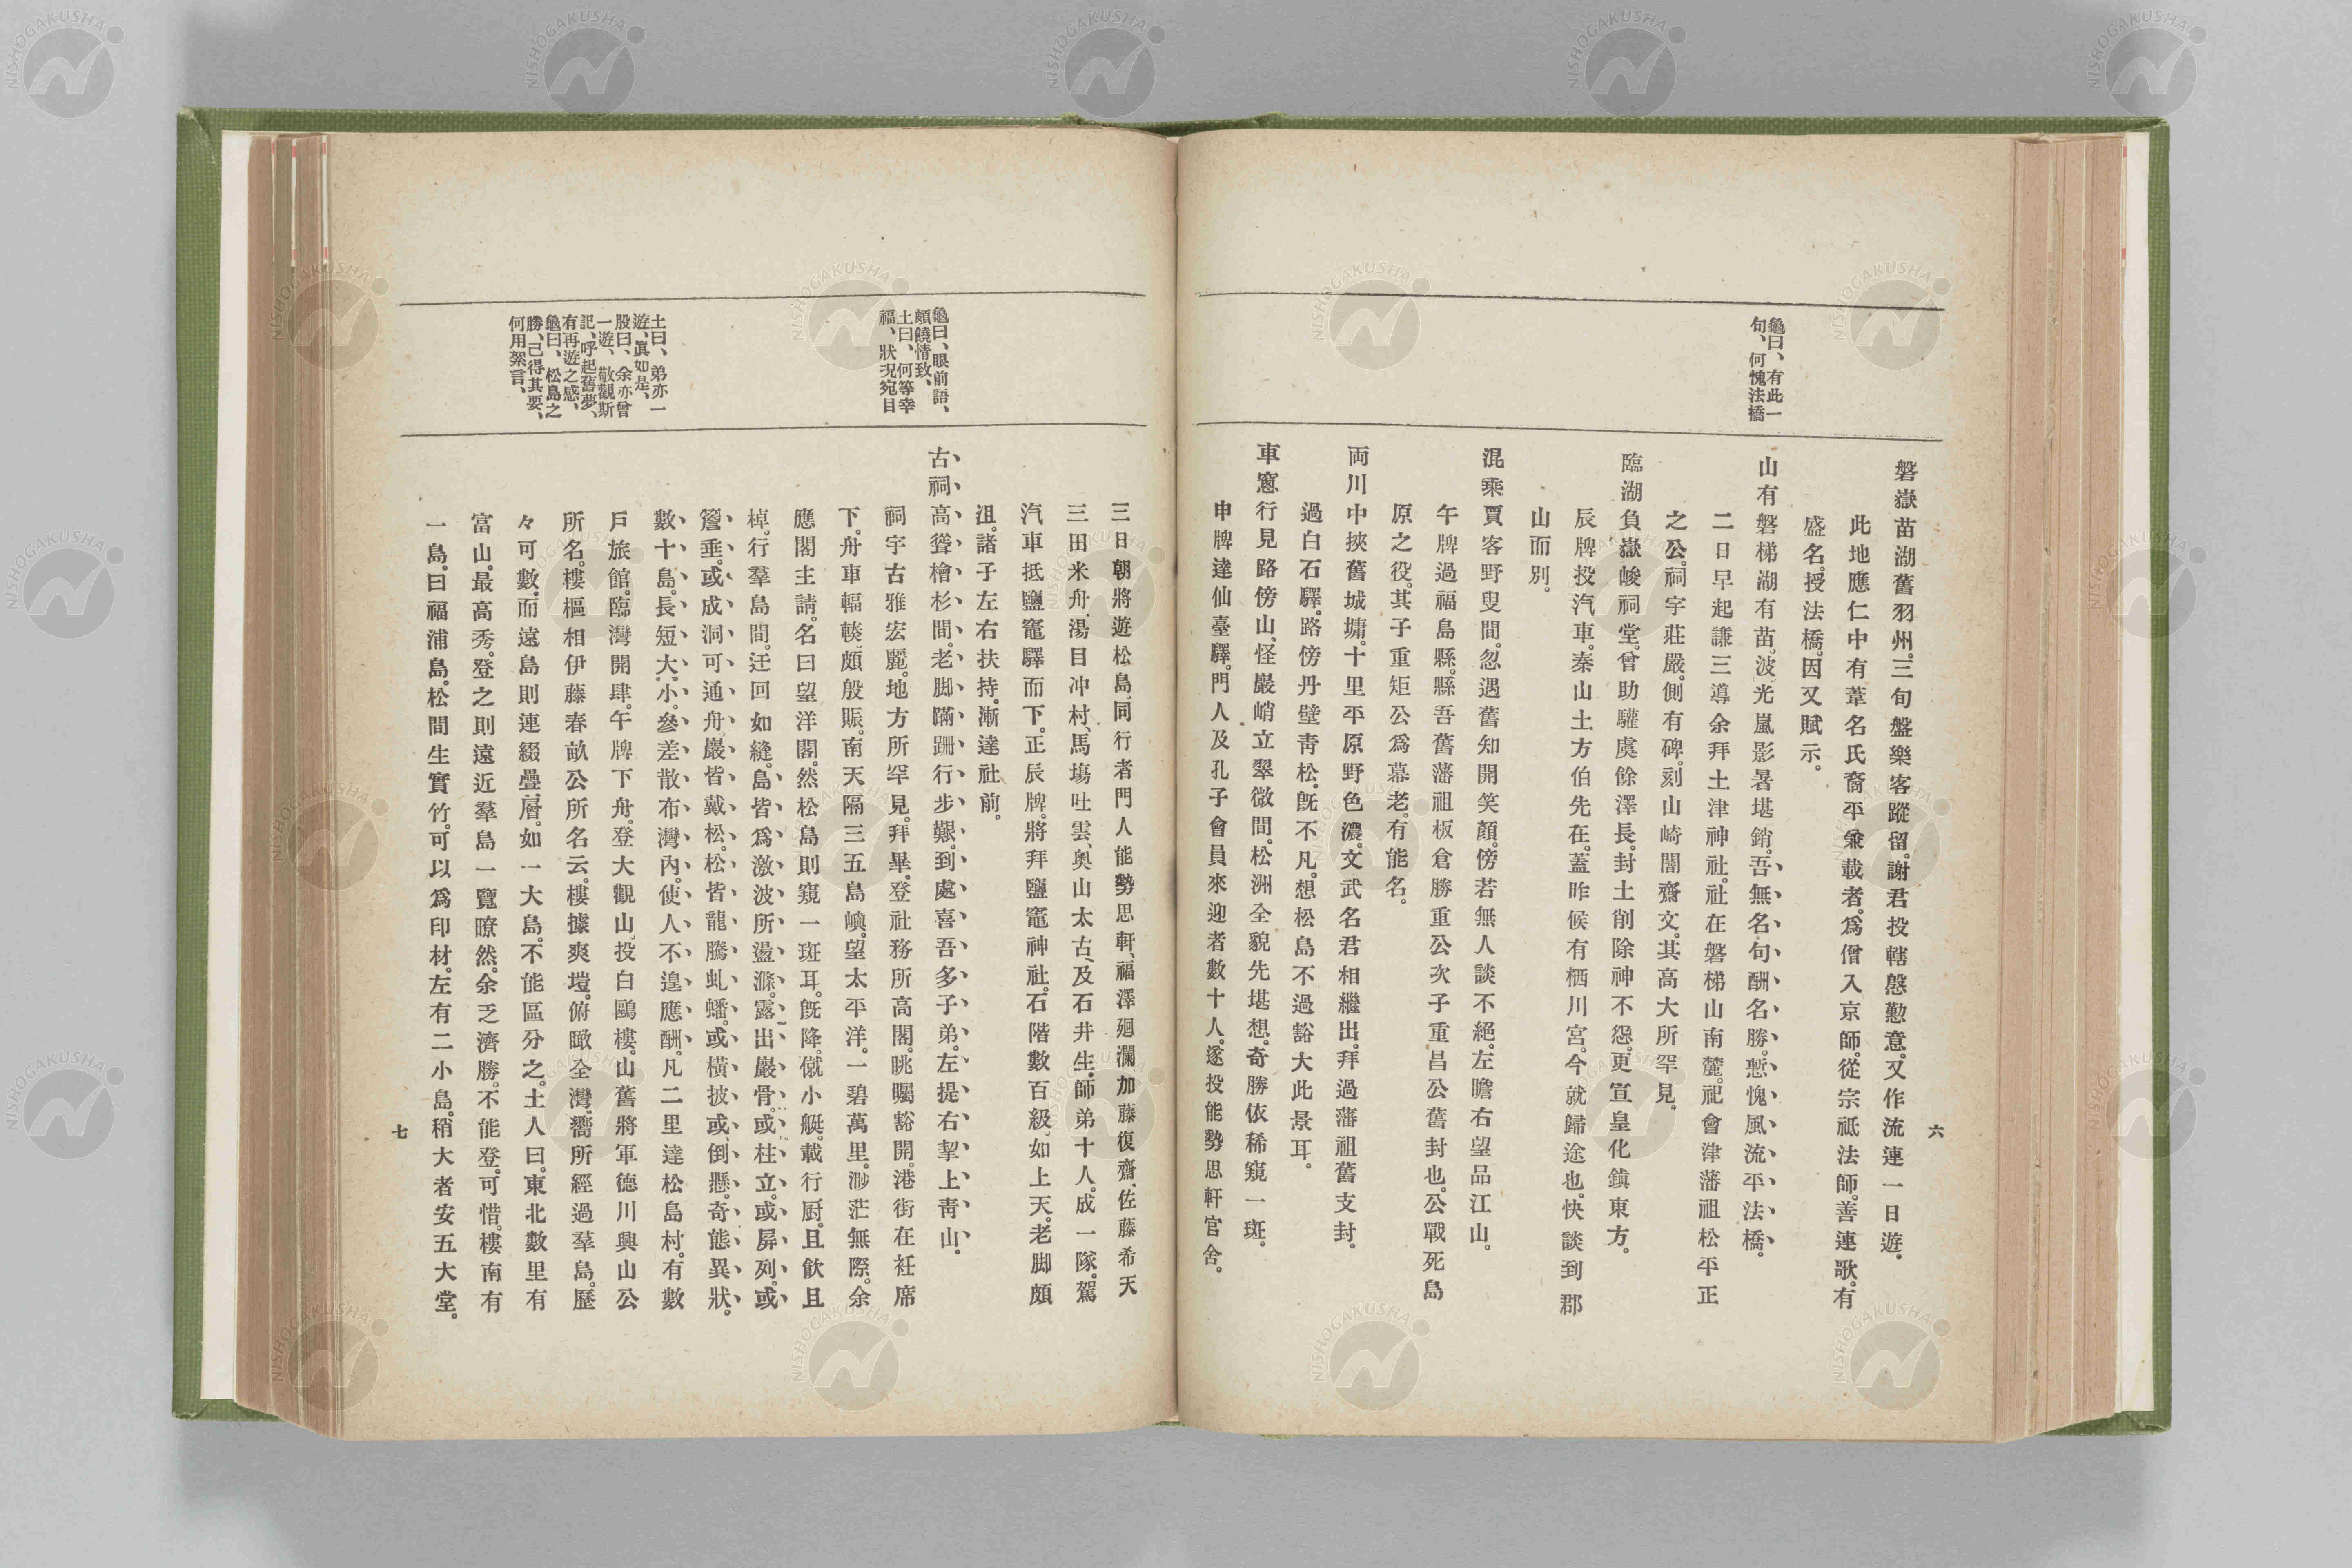 龜曰、有此一
句、何愧法橋
磐嶽苗湖舊羽州。三旬盤樂客蹤留。謝君投轄慇懃意。又作流連一日遊。
此地應仁中有葦名氏裔平兼載者。爲僧入京師。從宗祗法師。善連歌。有
盛名。授法橋。因又賦示。
山有磐梯湖有苗。波光嵐影暑堪銷。吾無名句酬名勝。慙愧風流平法橋。
二日早起謙三導余拜土津神社。社在磐梯山南麓。祀會津藩祖松平正
之公。祠宇莊嚴。側有碑。刻山崎闇齋文。其高大所罕見。
臨湖負嶽峻祠堂。曾助驩虞餘澤長。封土削除神不怨。更宣皇化鎮東方。
辰牌投汽車。秦山土方伯先在。蓋昨候有栖川宮。今就歸途也。快談到郡
山而別。
混乘賈客野叟間。忽遇舊知開笑顏。傍若無人談不絕。左瞻右望品江山。
午牌過福島縣。縣吾舊藩祖板倉勝重公次子重昌公舊封也。公戰死島
原之役。其子重矩公爲幕老。有能名。
両川中挾舊城墉。十里平原野色濃。文武名君相繼出。拜過藩祖舊支封。
過白石驛。路傍丹壁靑松。旣不凡。想松島不過豁大此景耳。
車窻行見路傍山、怪巖峭立翠微間。松洲全貌先堪想。奇勝依稀窺一斑。
申牌達仙臺驛。門人及孔子會員來迎者數十人。遂投能勢思軒官舍。
六
龜曰、眼前語、
頗饒情致、
土曰、何等幸
福、狀況宛目
土曰、弟亦一
遊、眞如是、
股曰、余亦曾
一遊、敬觀斯
記、呼起舊夢、
有再遊之感、
龜曰、松島之
勝、已得其要、
何用絮言、
三日朝將遊松島、同行者門人能勢思軒、福澤廻瀾、加藤復齋、佐藤希天
三田米舟、湯目冲村、馬塲吐雲、奧山太古、及石井生。師弟十人。成一隊。駕
汽車抵鹽竈驛而下。正辰牌。將拜鹽竈神社。石階數百級。如上天。老脚頗
沮。諸子左右扶持。漸達社前。
古祠高聳檜杉間。老脚蹣跚行步艱。到處喜吾多子弟。左提右挈上靑山。
祠宇古雅宏麗。地方所罕見。拜畢。登社務所高閣。眺矚豁開。港街在衽席
下。舟車輻輳、頗殷賑。南天隔三五島嶼。望太平洋。一碧萬里。渺茫無際。余
應閣主請。名曰望洋閣。然松島則窺一斑耳。旣降。僦小艇。載行厨。且飮且
棹。行羣島間。迂回如縫。島皆爲激波所盪滌。露出巖骨。或柱立。或屏列。或
簷垂。或成洞可通舟。巖皆戴松。松皆龍騰虬蟠。或橫披或倒懸。奇態異狀。
數十島。長短大小。參差散布灣內。使人不遑應酬。凡二里達松島村。有數
戶旅館。臨灣開肆。午牌下舟。登大觀山、投白鷗樓。山舊將軍德川興山公
所名。樓樞相伊藤春畝公所名云。樓據爽塏。俯瞰全灣。嚮所經過羣島。歷
々可數。而遠島則連綴疊層。如一大島。不能區分之。土人曰。東北數里有
富山。最高秀。登之則遠近羣島一覽瞭然。余乏濟勝。不能登。可惜。樓南有
一島。曰福浦島。松間生實竹。可以爲印材。左有二小島。稍大者安五大堂。
七